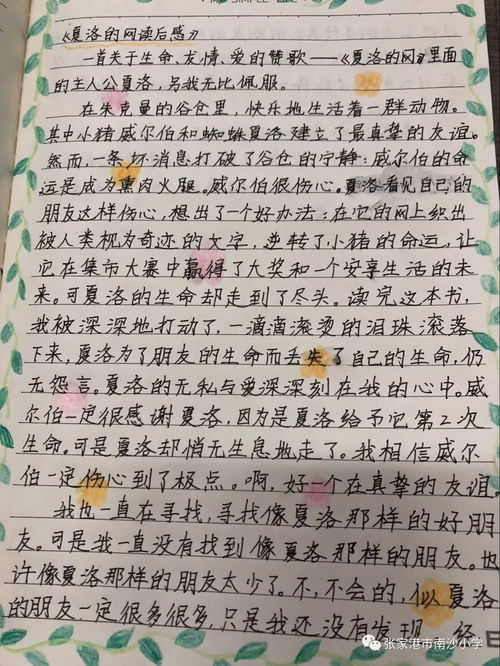 《夏洛的网读后感》
一首关于生命、友情、爱的赞歌——《夏洛的网》里面
的主人公夏洛,另我无比佩服。
在朱克曼的谷仓里,快乐地生活着一群动物。
其中小猪威尔伯和蜘蛛夏洛建立了最真挚的友谊。
然而,一条坏消息打破了谷仓的宁静:威尔伯的命
运是成为熏肉火腿。威尔伯很伤心。夏洛看见自己的
朋友这样伤心,想出了一个好办法:在它的网上织出
被人类视为奇迹的文字,逆转了小猪的命运,让
它在集市大赛中赢得了大奖和一个安享生活的未
来。可夏洛的生命却走到了尽头。读完这本书,
我被深深地打动了,一滴滴滚烫的泪珠滚落
下来,夏洛为了朋友的生命而丢失了自己的生命,仍
无怨言。夏洛的无私与爱深深刻在我的心中。威
尔伯一定很感谢夏洛,因为是夏洛给予它第2次
生命。可是夏洛却悄无生息地走了。我相信威尔
伯一定伤心到了极点。啊,好一个在真挚的友谊
我也一直在寻找,寻找像夏洛那样的好朋
友。可是我一直没有找到像夏洛那样的朋友。也
许像夏洛那样的朋友太少了。不,不会的,似夏洛
的朋友一定很多很多,只是我还没有发现
张家港市南沙小学